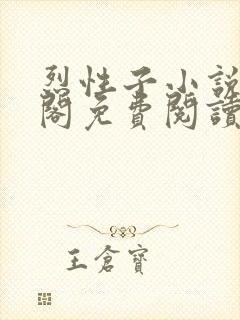 烈性子小說
閣免費閱讀
王倉寶